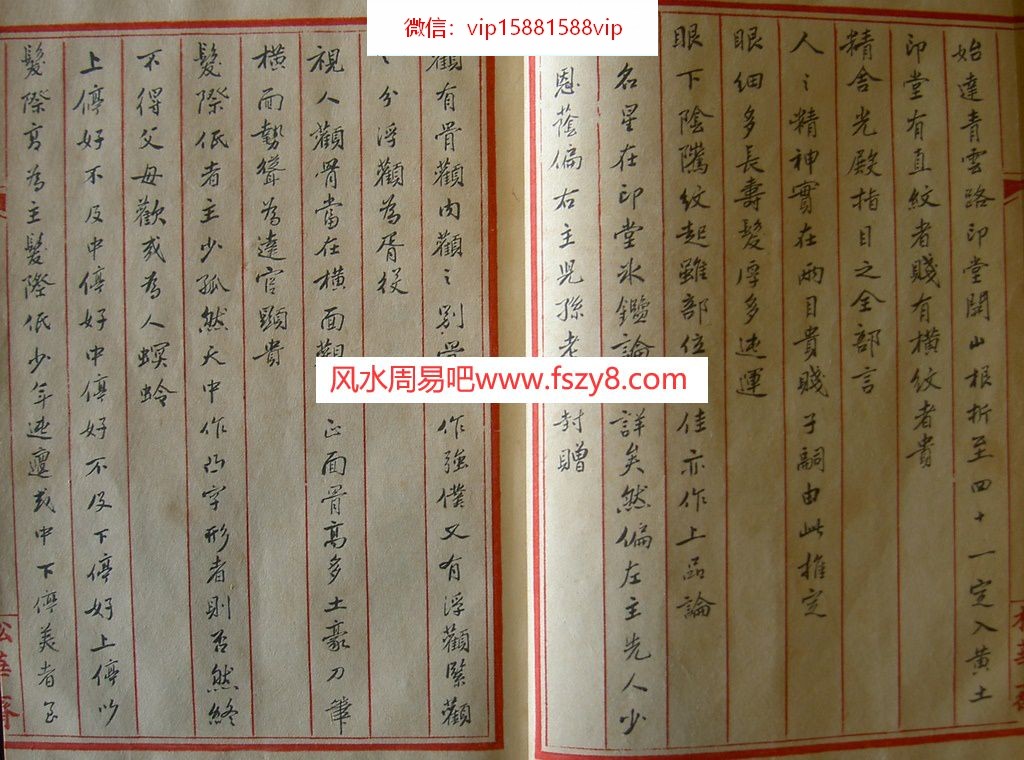 微信：vip15881588vip
始達青雲路印堂開山根折至四十一定入黄土
印堂有直紋者賤有橫紋者貴
精舍光殿指目之全部言
人之精神實在兩目貴賤子嗣由此推定
眼細多長壽髮厚多迍運
眼下陰騭紋起雖部位佳亦作上品論
名星在印堂冰鑑論詳矣然偏左主先人少
恩蔭偏右主兒孫老封贈
顴有骨顴肉顴之別作強僕又有浮顴緊顴
之分浮顴為胥役
視人顴骨當在橫面正面骨高多土豪刀筆
橫而勢聳為達官顯貴
髮際低者主少孤然天中作凸字形者則否然終
不得父母歡或為人螟蛉
上停好不及中停好中停好不及下停好上停以
髮際高為主髮際低少年迍邅或中下停美者至
风水周易吧www.fszy8.com
松華齋